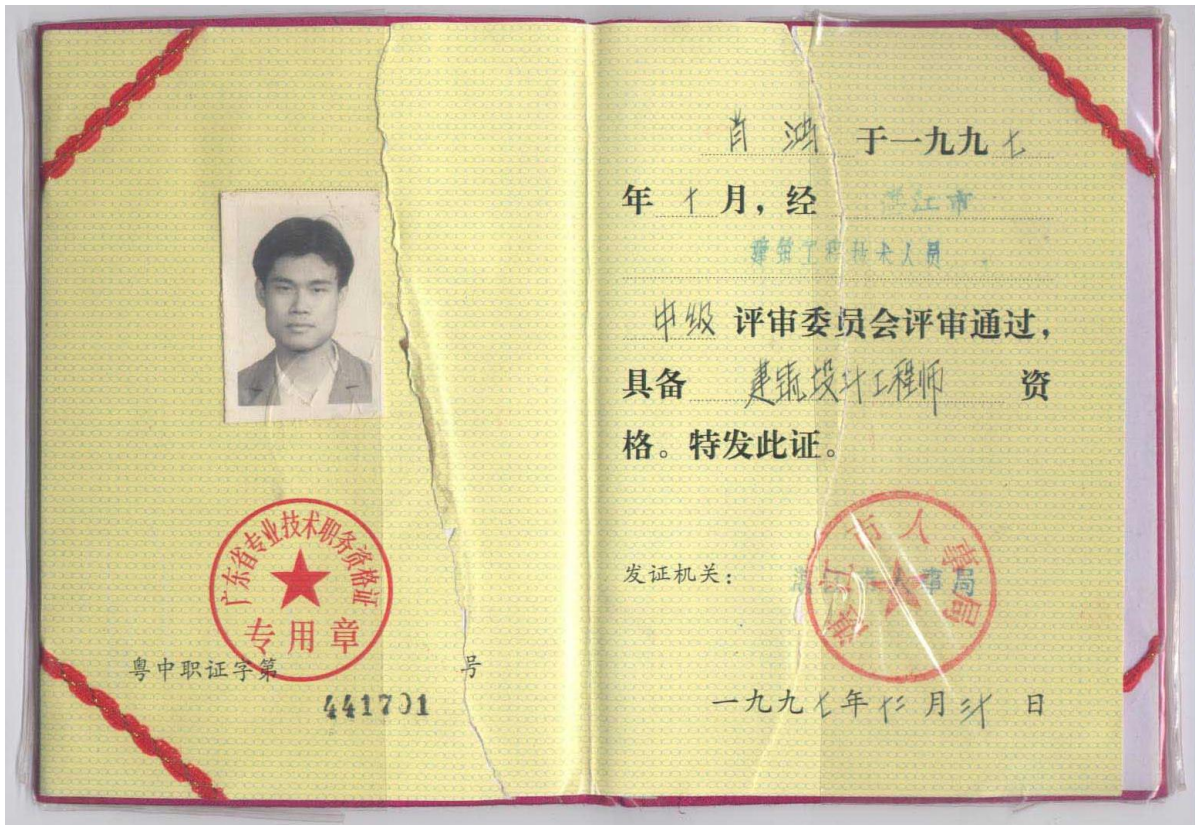 广东省专业技术职务资格证
专用章
粤中职证字第 号
441701
肖鸿 于一九九七
年十月，经 湛江市
建筑工程技术人员
中级 评审委员会评审通过，
具备 建筑设计工程师 资
格。特发此证。
湛江市人事局
发证机关： 湛江市人事局
一九九七年十二月三十日